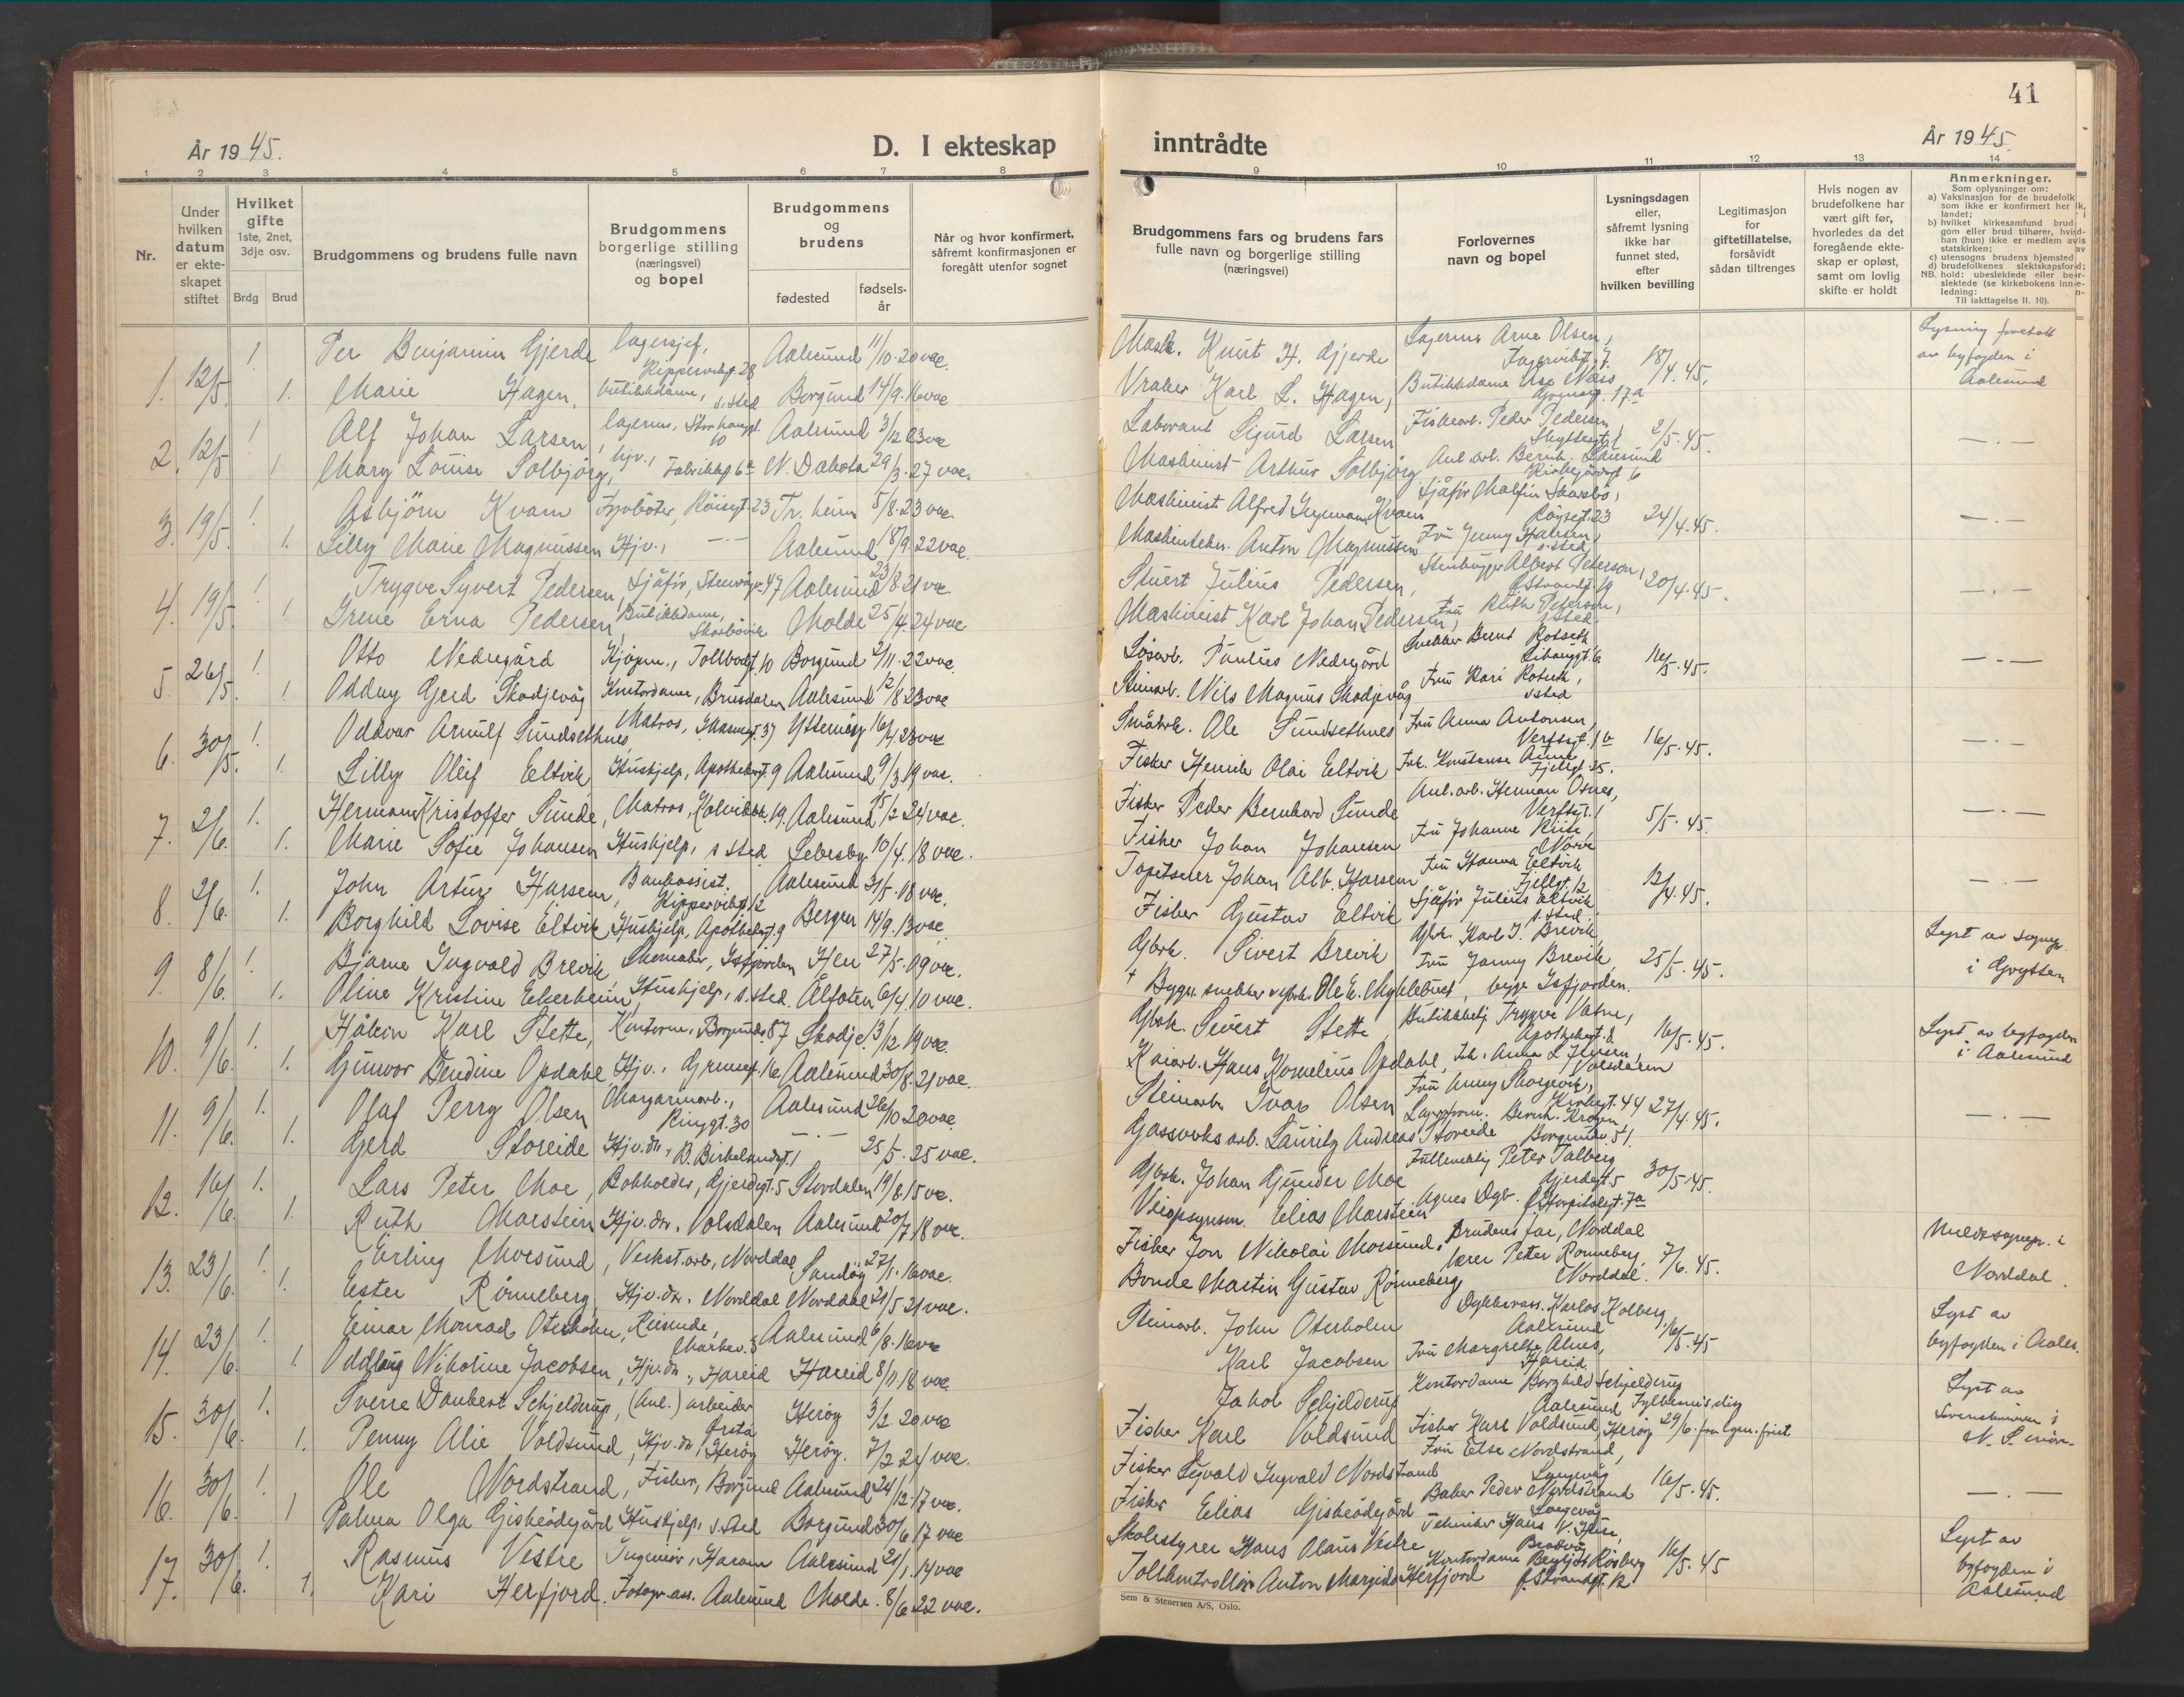 41
År 1945.
D. I ekteskap inntrådte
År 1945.
1 2 3 4 5 6 7 8 9 10 11 12 13 14
Nr.
Under hvilken datum er ekteskapet stiftet
Hvilket gifte 1ste, 2net, 3dje osv.
Brdg Brud
Brudgommens og brudens fulle navn
Brudgommens borgerlige stilling (næringsvei) og bopel
Brudgommens og brudens
fødested
fødselsår
Når og hvor konfirmert, såfremt konfirmasjonen er foregått utenfor sognet
Brudgommens fars og brudens fars fulle navn og borgerlige stilling (næringsvei)
Forlovernes navn og bopel
Lysningsdagen eller, såfremt lysning ikke har funnet sted, efter hvilken bevilling
Legitimasjon for giftetillatelse, forsåvidt sådan tiltrenges
Hvis nogen av brudefolkene har vært gift før, hvorledes da det foregående ekteskap er opløst, samt om lovlig skifte er holdt
Anmerkninger.
Som oplysninger om:
a) Vaksinasjon for de brudefolk som ikke er konfirmert her i landet;
b) hvilket kirkesamfund brudgom eller brud tilhører, hvis han (hun) ikke er medlem av statskirken;
c) utensogns brudens hjemsted
d) brudefolkenes slektskapsforhold: ubeslektede eller beslektede (se kirkebokens innledning:
NB. Til iakttagelse II. 10).
1. 12/5. 1. Per Benjamin Gjerde lagersjef, Kippervikgt. 28 Aalesund 11/10. 20 vac. Mask. Knut H. Gjerde Lagerm. Arne Olsen, Fagervikgt. 7 18/4.45. Lysning foretatt av byfogden i Aalesund
1. Marie Hagen, butikkdame, s. sted Borgund 14/9. 16 vac Vraker Karl L. Hagen, Butikkdame Næss 17a
2. 12/5 1 Alf Johan Larsen, lagerm., Storhauggt. 10 Aalesund 3/12 23 vac Laborant Sigurd Larsen Fiskearb. Peder Pedersen, Skyttergt. 1 2/5.45. —.—
1 Mary Louise Solbjørg, hjv., Fabrikkgt. 6a N. Dakota 29/3. 27 vac. Maskinist Arthur Solbjørg Anl. arb. Bernh. Kirkegårdsgt 6
3. 19/5. 1. Asbjörn Kvam Fyrbøter, Röisgt. 23 Tr. heim 5/8. 23 vac. Maskinist Alfred Ingemann Kvam Sjåfør Malfin Skarsbö, Röysegt. 23 24/4.45. —.—
1. Lilly Marie Magnussen Hjv., —.— Aalesund 18/9. 22 vac. Maskintekn. Anton Magnussen Fru Jenny Hansen, s. sted
4. 19/5 1 Trygve Syvert Pedersen, Sjåfør, Stenvågv. 47 Aalesund 23/8 21 vac. Stuert Julius Pedersen, Stenhugger Albert Peterson, 20/4.45. —.—
1 Irene Erna Pedersen, Butikkdame, Skarbövik Molde 25/4. 24 vac Maskinist Karl Johan Pedersen, Fru Ruth Peterson, s. sted.
5. 26/5. 1. Otto Nedregård Kjøpm., Tollbodgt. 10 Borgund 2/11. 22 vac. Løsarb. Paulus Nedregård Snekker Bernt Rotseth 16/5.45. —.—
1 Oddny Gjerd Skodjevåg Kontordame, Brusdalen Aalesund 12/8 23 vac Steinarb. Nils Magnus Skodjevåg Fru Kari Rotseth, s. sted
6. 30/5. 1. Oddvar Arnulf Sundsethnes, Matros, 37 16/4. 23 vac Småbrk. Ole Sundsethnes Fru Anna Antonsen, Verftsgt. 1b 16/5.45. —.—
1. Lilly Oleif Eltvik Hushjelp, Apothekergt. 9 Aalesund 9/3 19 vac. Fisker Henrik Olai Eltvik Frk. Konstanse Aune Fjellgt. 25.
7. 2/6. 1. Herman Kristoffer Sunde, Matros, 19. Aalesund 15/2 24 vac. Fisker Peder Bernhard Sunde Anl. arb. Herman Osnes, Verftsgt. 1 5/5.45. —.—
1. Marie Sofie Johansen Hushjelp, s. sted Lebesby. 10/4. 18 vac. Fisker Johan Johansen Fru Johanne Riise, Nörve
8. 2/6. 1. John Artur Harsem, Bankassist. Kippervikgt. 12 Aalesund 31/5. 18 vac. Tapetserer Johan Alb. Harsem Fru Hanna Eltvik Fjellgt. 12 12/4.45. —.—
1. Borghild Lovise Eltvik Hushjelp, Apothekergt. 9 Bergen 14/9. 13 vac. Fisker Gustav Eltvik Sjåfør Julius Eltvik s. sted.
9. 8/6. 1. Bjarne Ingvald Brevik Skomaker, Isfjorden Hen 27/5. 09 vac. Gbrk. Sivert Brevik Gbk. Karl J. Brevik 25/5.45. Lyst av sognepr. i Grytten
1. Oline Kristine Eikerheim, Hushjelp, s. sted. Ålfoten 6/4. 10 vac. † Bygn. snekker & gbrk. Ole E. Myklebust, Fru Jenny Brevik begge Isfjorden.
10. 9/6. 1. Håkon Karl Stette, Kontorm., Borgundv. 87 Skodje. 13/12 19 vac. Gbk. Sivert Stette Butikkbetj. Trygve Vatne, Apothekergt. 8. 16/5.45. Lyst av byfogden i Aalesund
1. Gunvor Bendine Opdahl Hjv., Grensegt. 16 Aalesund 30/8. 21 vac. Kaiarb. Hans Kornelius Opdahl, Frk. Anna L. Iversen, Volsdalen
11. 9/6. 1. Olaf Perry Olsen Margarinarb., Ringgt. 30 Aalesund 26/10 20 vac. Steinarb. Ivar Olsen Fru Anny Skorgevik, Kirkegt. 44 27/4.45. —.—
1. Gerd Storeide Hjv. dtr., B. Birkelandsgt. 1 —.— 25/5. 25 vac. Gassverks arb. Lauritz Andreas Storeide Lagerform. Bernh. Krogen, Borgundv. 51.
12. 16/6. 1. Lars Peter Moe, Bokholder, Gjerdegt. 5 Stordalen 19/8. 15 vac. Gbrk. Johan Gunder Moe Fullmektig Peter Talberg Gjerdegt. 5 30/5.45.
1. Ruth Marstein Hjv. dtr. Volsdalen Aalesund 20/7. 18 vac. Veiopsynsm. Elias Marstein Agnes Hospitalsgt. 7a
13. 23/6. 1. Erling Morsund, Verkst. arb., Norddal Sandöy 27/1. 16 vac. Fisker Jon Nikolai Morsund. Brudens far, Norddal 7/6.45. Meldt sognepr. i Norddal.
1. Ester Rönneberg, Hjv. dtr. Norddal Norddal 21/5 21 vac. Bonde Martin Gustav Rönneberg lærer Petter Rönneberg, Norddal.
14. 23/6. 1. Einar Monrad Oterholm, Reisende, Markev. 3 Aalesund 6/8. 16 vac Steinarb. John Oterholm Dykkerass. Karlos Kolberg, Aalesund 16/5.45 Lyst av byfogden i Aales.
1. Oddlaug Nikoline Jacobsen, Hjv. dtr., Hareid Hareid 8/11. 18 vac. Karl Jacobsen Fru Margrethe Alnes, Hareid.
15. 30/6. 1. Sverre Daubert Schjelderup, (Anl.) arbeider Ørsta Herøy 3/2 20 vac Jakob Schjelderup Kontordame Borghild Schjelderup Aalesund Lyst av
1. Penny Alie Voldsund, Hjv. dtr., Herøy Herøy. 7/2 24 vac. Fisker Karl Voldsund Fisker Karl Voldsund, Herøy 29/6.
16. 30/6. 1. Ole Nordstrand, Fisker, Borgund Aalesund 24/12. 17 vac. Fisker Sigvald Ingvald Nordstrand Fru Else Nordstrand, Langevåg 16/5.45. —.—
1 Palma Olga Giskeödegård Hushjelp, s. sted Borgund 30/6 17 vac Fisker Elias Giskeödegård Baker Peder Nordstrand Langevåg
17. 30/6. 1. Rasmus Vestre Ingeniør, Haram Aalesund 21/1. 14 vac Skolestyrer Hans Olaus Vestre Tekniker Hans V. 16/5.45 Lyst av byfogden i Aalesund
1. Kari Herfjord. Fotogr. ass. Aalesund Molde. 8/6 22 vac. Tollkontrollör Anton Margido Herfjord Kontordame Bergljot Röyberg
Sem & Stenersen A/S, Oslo.